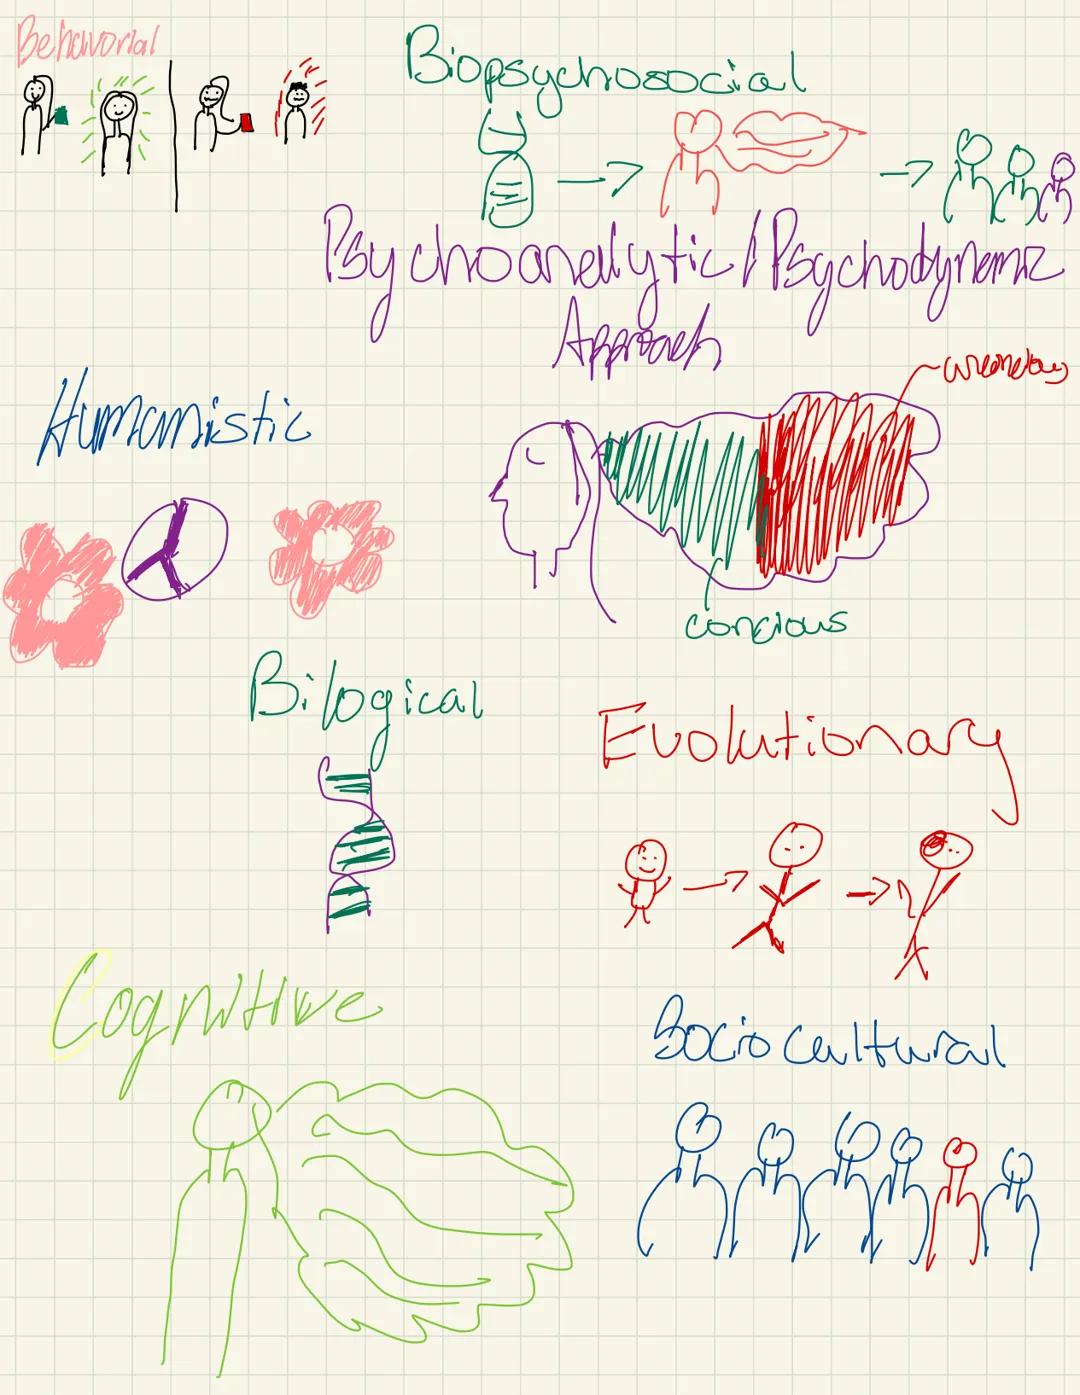 Behavorial
Biopsychosocial
Psychoanalytic / Psychodynamic
Approach
Humanistic
concious
Bilogical
Evolutionary
Cognitive
Socio cultural